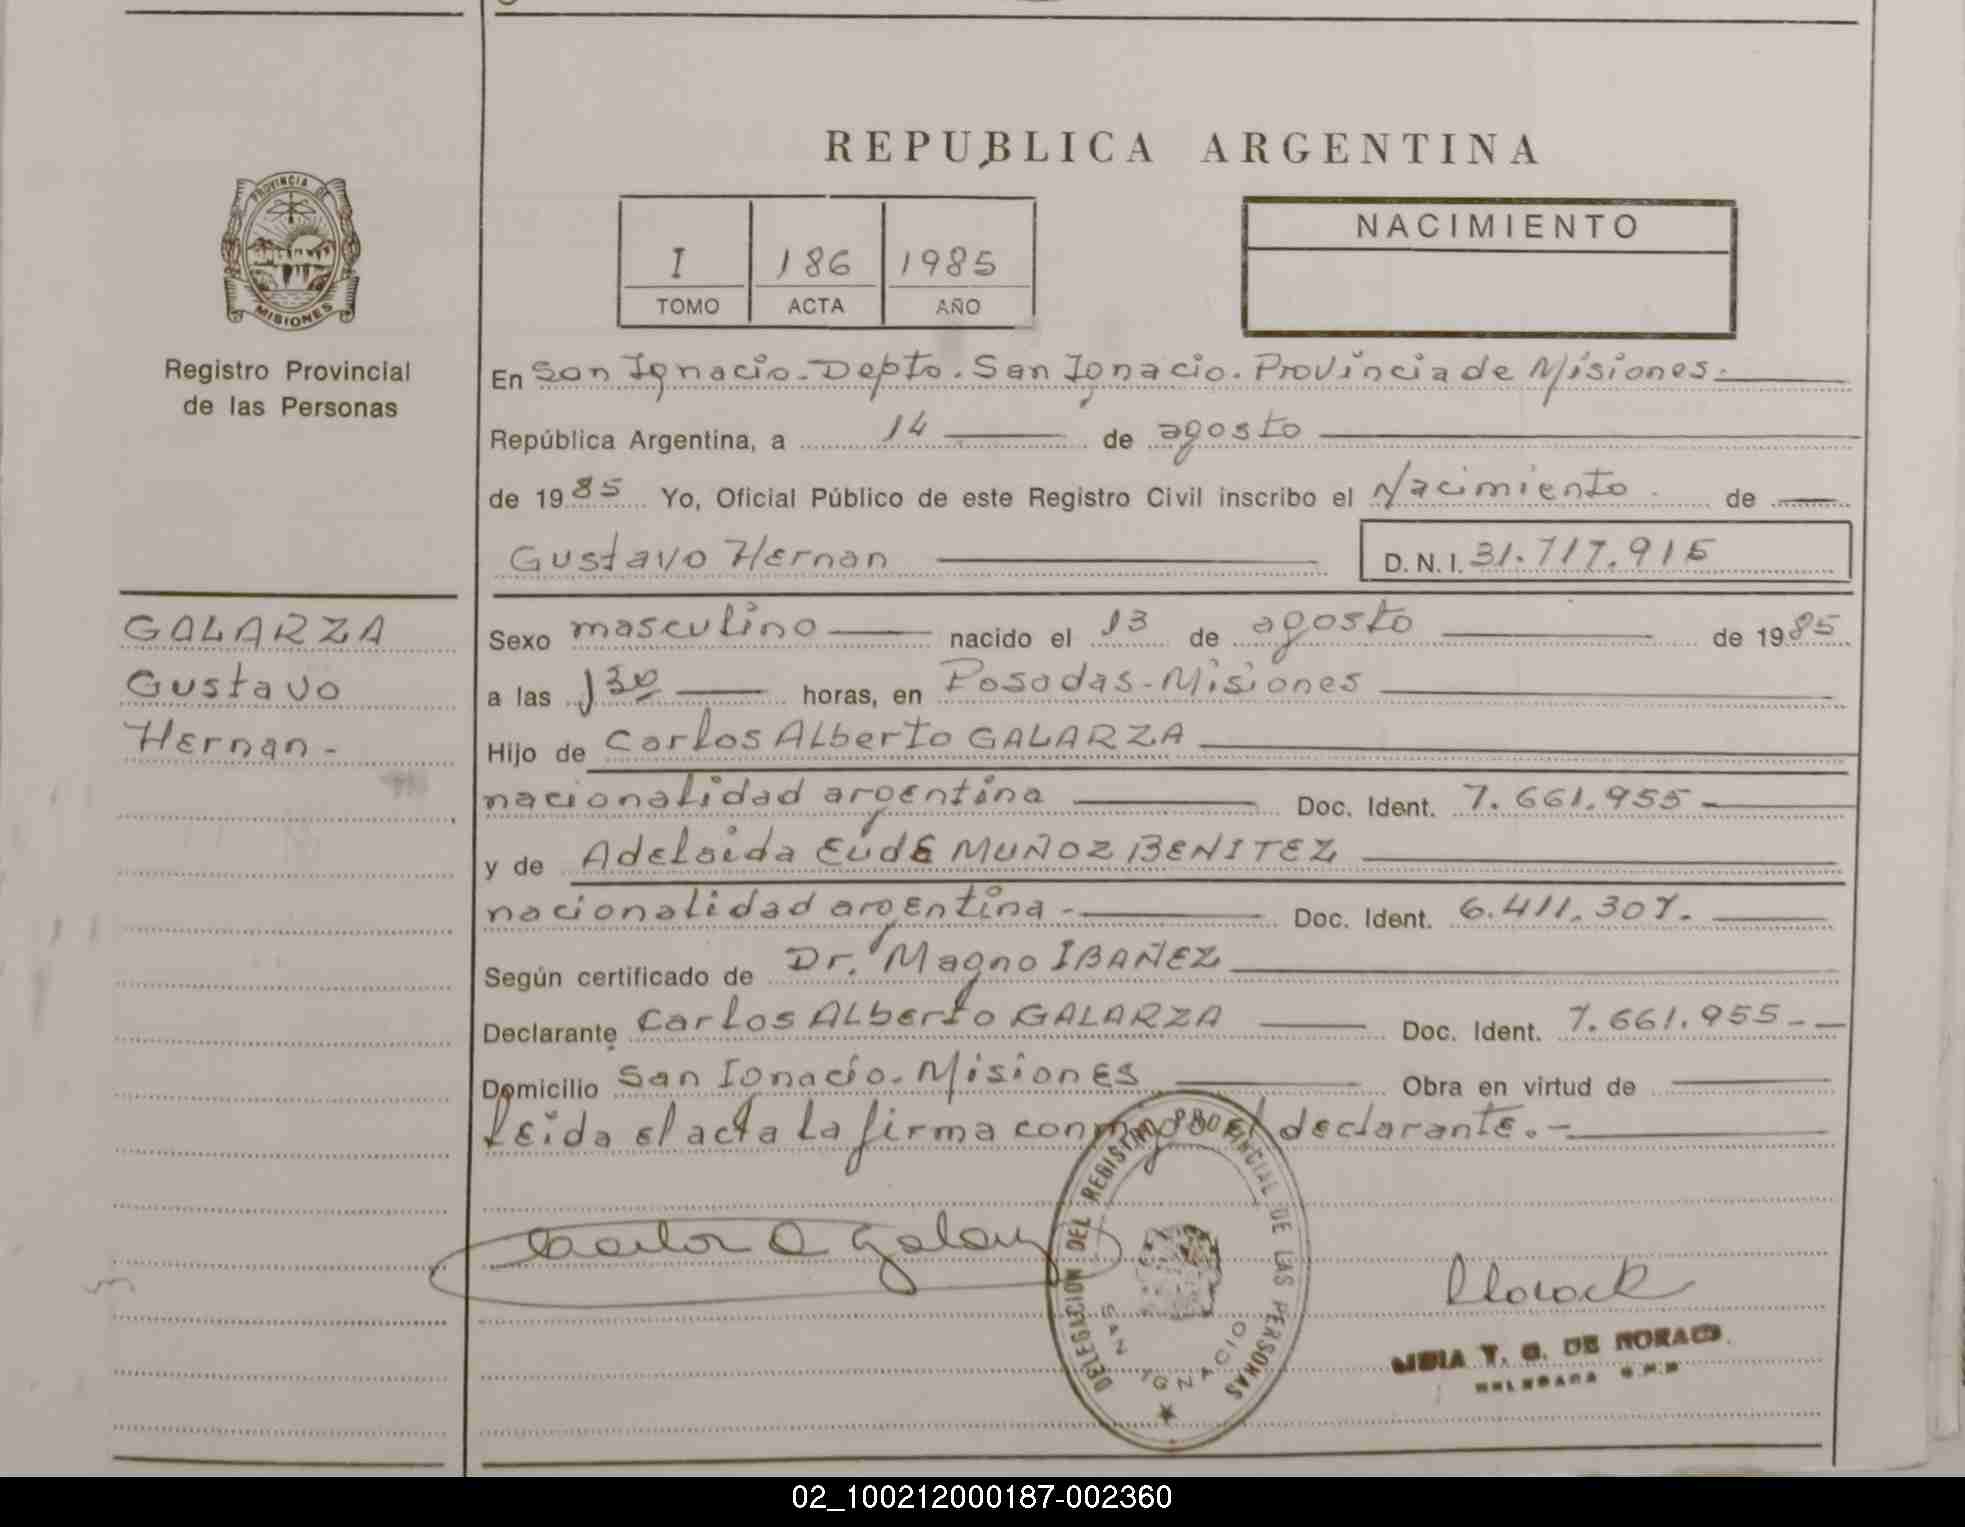 REPUBLICA ARGENTINA
PROVINCIA DE
MISIONES
Registro Provincial
de las Personas
I 186 1985
TOMO ACTA AÑO
NACIMIENTO
En San Ignacio. Depto. San Ignacio. Provincia de Misiones.
República Argentina, a 14 de agosto
de 1985 Yo, Oficial Público de este Registro Civil inscribo el Nacimiento. de
Gustavo Hernan D. N. I. 31.717.915
GALARZA
Gustavo
Hernan -
Sexo masculino nacido el 13 de agosto de 1985
a las 1 30 horas, en Posadas - Misiones
Hijo de Carlos Alberto GALARZA
nacionalidad argentina Doc. Ident. 7.661.955
y de Adelaida Eude MUÑOZ BENITEZ
nacionalidad argentina - Doc. Ident. 6.411.307.
Según certificado de Dr. Magno IBAÑEZ
Declarante Carlos Alberto GALARZA Doc. Ident. 7.661.955 -
Domicilio San Ignacio. Misiones Obra en virtud de
Leida el acta la firma conmigo el declarante. -
Carlos A Galarza
DELEGACION DEL REGISTRO PROVINCIAL DE LAS PERSONAS
SAN IGNACIO
DE
02_100212000187-002360